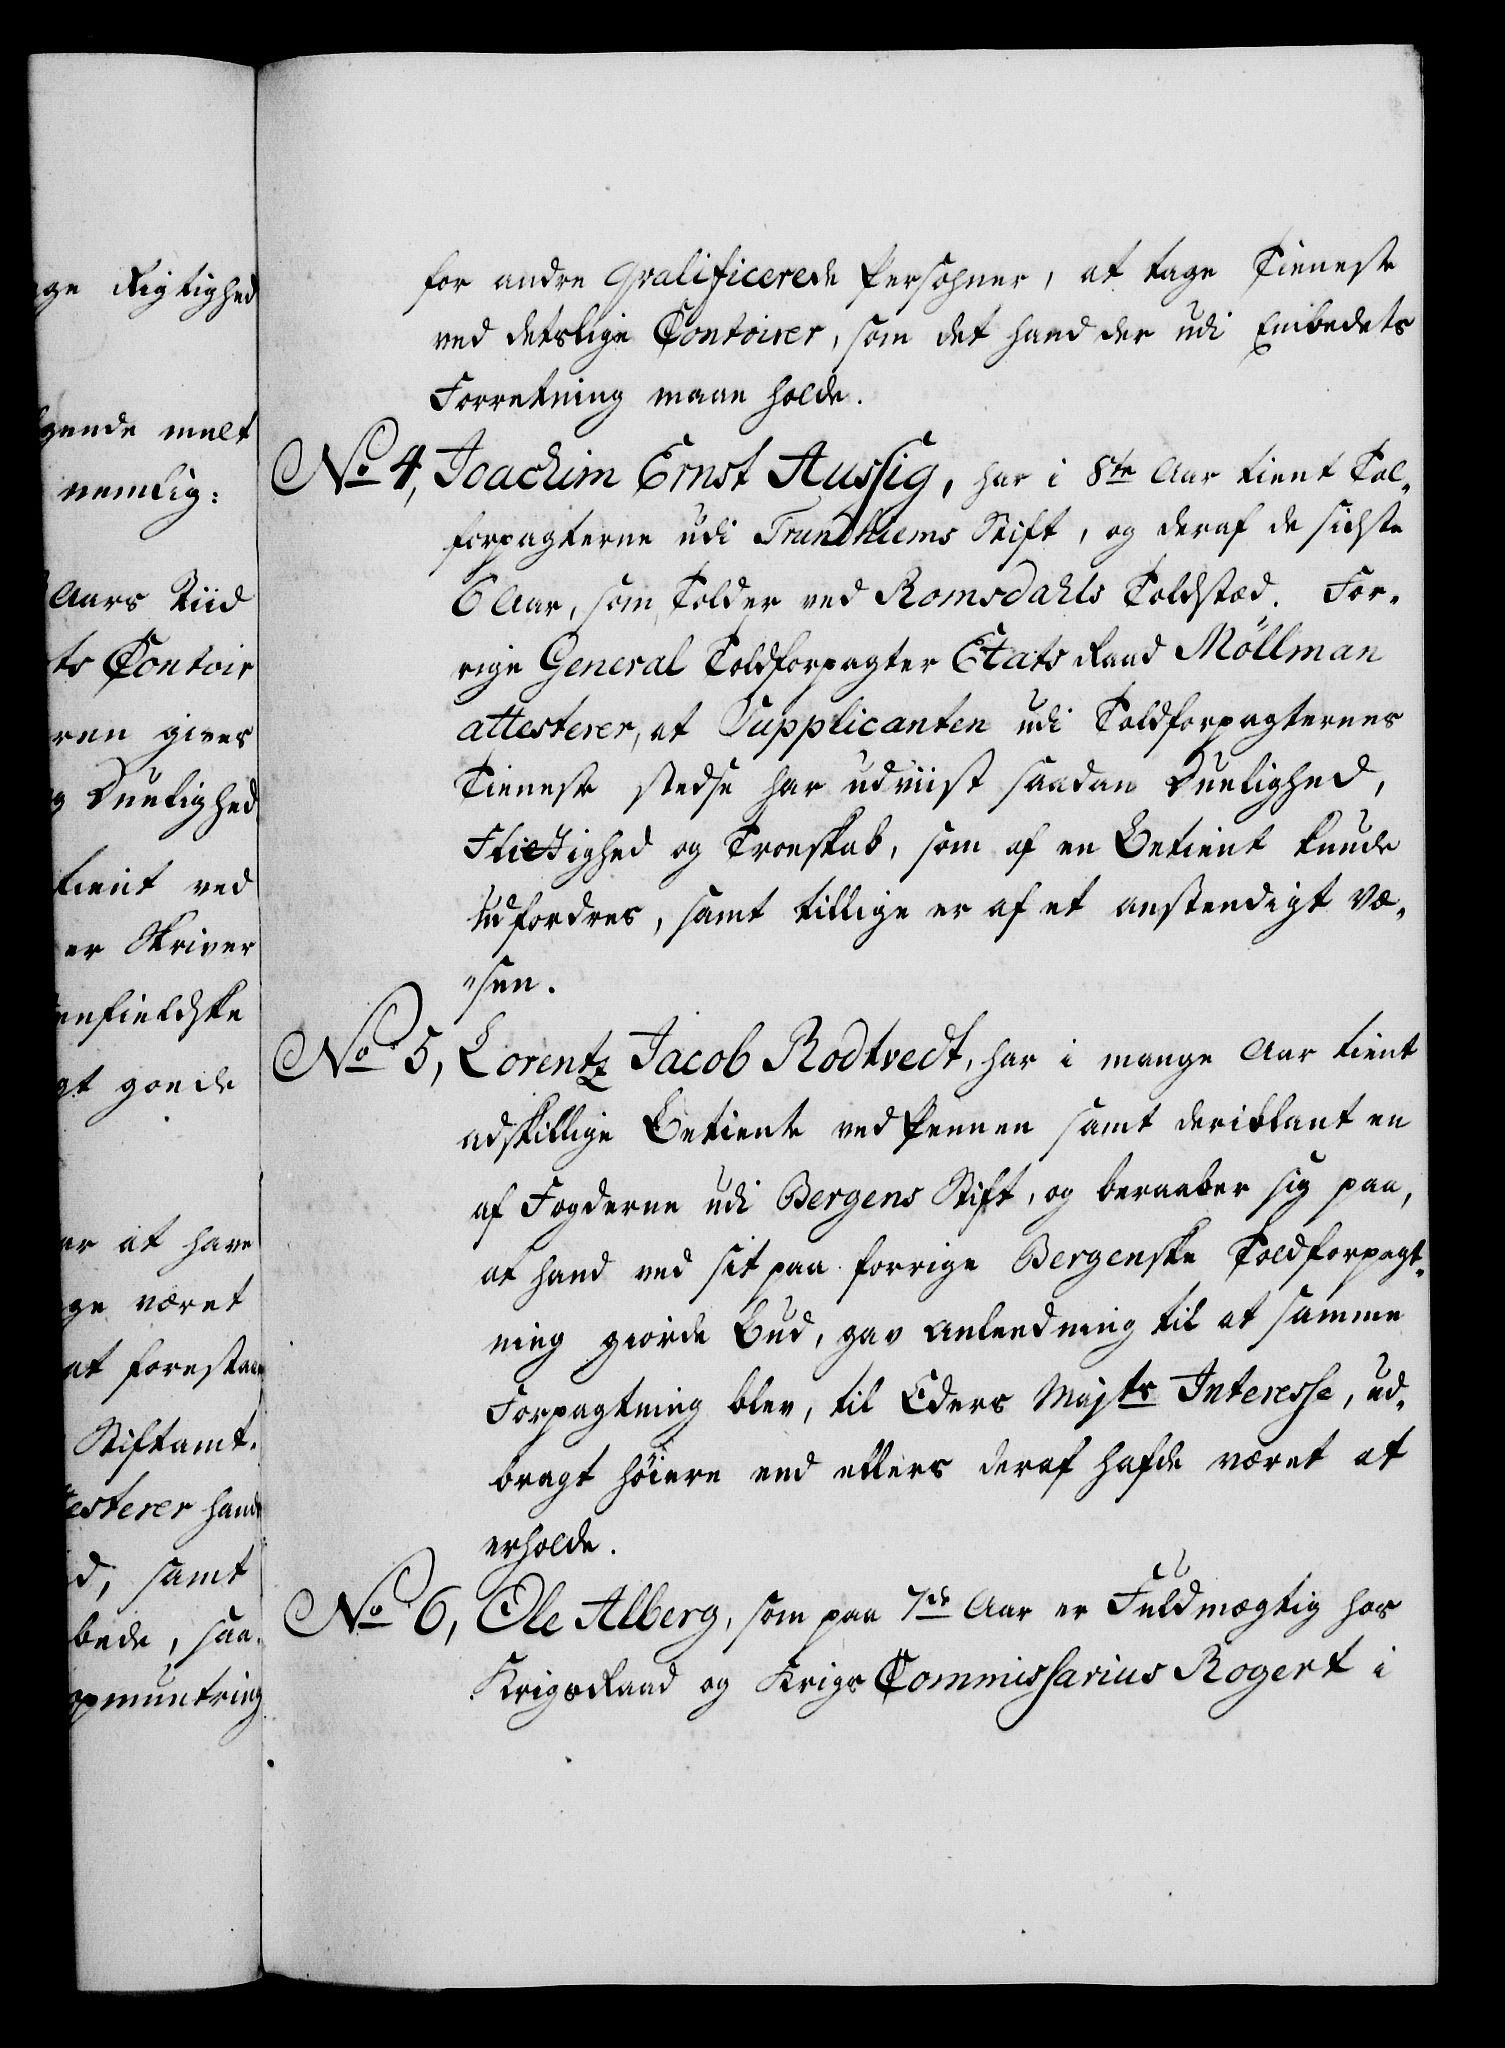 ge Rigtighed
gende melt
nemlig:
Aars Tiid
ts Contoir
ren gives
g Duelighed
tient ved
er Skriver
enfieldske
gt goede
ar at have
ge været
at forestaae
Stiftamt-
testerer hand
d, samt
bede, saa-
opmuntring
for andre Qvalificerede Persohner, at tage Tieneste
ved detslige Contoirer, som det hand der udi Embedets
Forretning maae holde.
No 4, Joachim Ernst Aussig, har i 8te Aar tient Tol-
forpagterne udi Trundhiems Stift, og deraf de sidste
6 Aar, som Tolder ved Romsdahls Toldsted. For-
rige General Toldforpagter Etats Raad Möllman
attesterer, at Supplicanten udi Toldforpagternes
Tieneste stedse har udviist saadan Duelighed,
Flittighed og Troeskab, som af en Betient kunde
udfordres, samt tillige er af et anstendigt Væ-
"sen.
No 5, Lorentz Jacob Rodtvedt, har i mange Aar tient
adskillige Betiente ved Pennen samt deriblant en
af Fogderne udi Bergens Stift, og beraaber sig paa,
at hand ved sit paa forrige Bergenske Toldforpagt-
ning giorde Bud, gav Anledning til at samme
Forpagtning blev, til Eders Majts Interesse, ud-
bragt høiere end ellers deraf hafde været at
erholde.
No 6, Ole Alberg, som paa 7de Aar er Fuldmægtig hos
KrigsRaad og Krigs Commissarius Rogert i